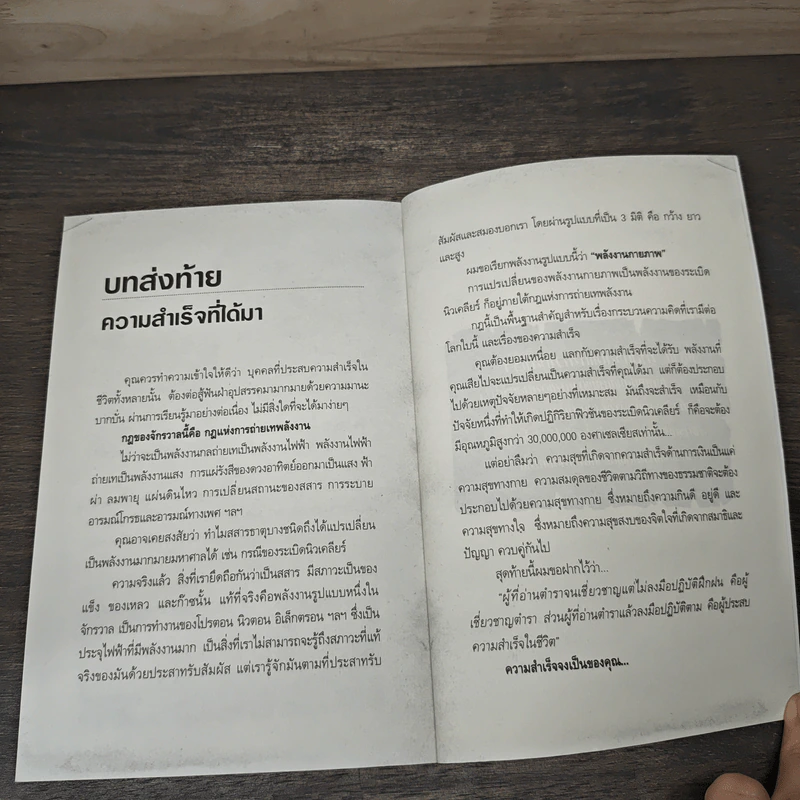 บทส่งท้าย
ความสำเร็จที่ได้มา
คุณควรทำความเข้าใจให้ดีว่า บุคคลที่ประสบความสำเร็จใน
ชีวิตทั้งหลายนั้น ต้องต่อสู้ฟันฝ่าอุปสรรคมามากมายด้วยความมานะ
บากบั่น ผ่านการเรียนรู้มาอย่างต่อเนื่อง ไม่มีสิ่งใดที่จะได้มาง่ายๆ
กฎของจักรวาลนี้คือ กฎแห่งการถ่ายเทพลังงาน
ไม่ว่าจะเป็นพลังงานกลถ่ายเทเป็นพลังงานไฟฟ้า พลังงานไฟฟ้า
ถ่ายเทเป็นพลังงานแสง การแผ่รังสีของดวงอาทิตย์ออกมาเป็นแสง ฟ้า
ผ่า ลมพายุ แผ่นดินไหว การเปลี่ยนสถานะของสสาร การระบาย
อารมณ์โกรธและอารมณ์ทางเพศ ฯลฯ
คุณอาจเคยสงสัยว่า ทำไมสสารธาตุบางชนิดถึงได้แปรเปลี่ยน
เป็นพลังงานมากมายมหาศาลได้ เช่น กรณีของระเบิดนิวเคลียร์
ความจริงแล้ว สิ่งที่เรายึดถือกันว่าเป็นสสาร มีสภาวะเป็นของ
แข็ง ของเหลว และก๊าซนั้น แท้ที่จริงคือพลังงานรูปแบบหนึ่งใน
จักรวาล เป็นการทำงานของโปรตอน นิวตอน อิเล็กตรอน ฯลฯ ซึ่งเป็น
ประจุไฟฟ้าที่มีพลังงานมาก เป็นสิ่งที่เราไม่สามารถจะรู้ถึงสภาวะที่แท้
จริงของมันด้วยประสาทรับสัมผัส แต่เรารู้จักมันตามที่ประสาทรับ
สัมผัสและสมองบอกเรา โดยผ่านรูปแบบที่เป็น 3 มิติ คือ กว้าง ยาว
และสูง
ผมขอเรียกพลังงานรูปแบบนี้ว่า "พลังงานกายภาพ"
การแปรเปลี่ยนของพลังงานกายภาพเป็นพลังงานของระเบิด
นิวเคลียร์ ก็อยู่ภายใต้กฎแห่งการถ่ายเทพลังงาน
กฎนี้เป็นพื้นฐานสำคัญสำหรับเรื่องกระบวนความคิดที่เรามีต่อ
โลกใบนี้ และเรื่องของความสำเร็จ
คุณต้องยอมเหนื่อย แลกกับความสำเร็จที่จะได้รับ พลังงานที่
คุณเสียไปจะแปรเปลี่ยนเป็นความสำเร็จที่คุณได้มา แต่ก็ต้องประกอบ
ไปด้วยเหตุปัจจัยหลายๆอย่างที่เหมาะสม มันถึงจะสำเร็จ เหมือนกับ
ปัจจัยหนึ่งที่ทำให้เกิดปฏิกิริยาฟิวชันของระเบิดนิวเคลียร์ ก็คือจะต้อง
มีอุณหภูมิสูงกว่า 30,000,000 องศาเซลเซียสเท่านั้น...
แต่อย่าลืมว่า ความสุขที่เกิดจากความสำเร็จด้านการเงินเป็นแค่
ความสุขทางกาย ความสมดุลของชีวิตตามวิถีทางของธรรมชาติจะต้อง
ประกอบไปด้วยความสุขทางกาย ซึ่งหมายถึงความกินดี อยู่ดี และ
ความสุขทางใจ ซึ่งหมายถึงความสุขสงบของจิตใจที่เกิดจากสมาธิและ
ปัญญา ควบคู่กันไป
สุดท้ายนี้ผมขอฝากไว้ว่า...
"ผู้ที่อ่านตำราจนเชี่ยวชาญแต่ไม่ลงมือปฏิบัติฝึกฝน คือผู้
เชี่ยวชาญตำรา ส่วนผู้ที่อ่านตำราแล้วลงมือปฏิบัติตาม คือผู้ประสบ
ความสำเร็จในชีวิต"
ความสำเร็จจงเป็นของคุณ...